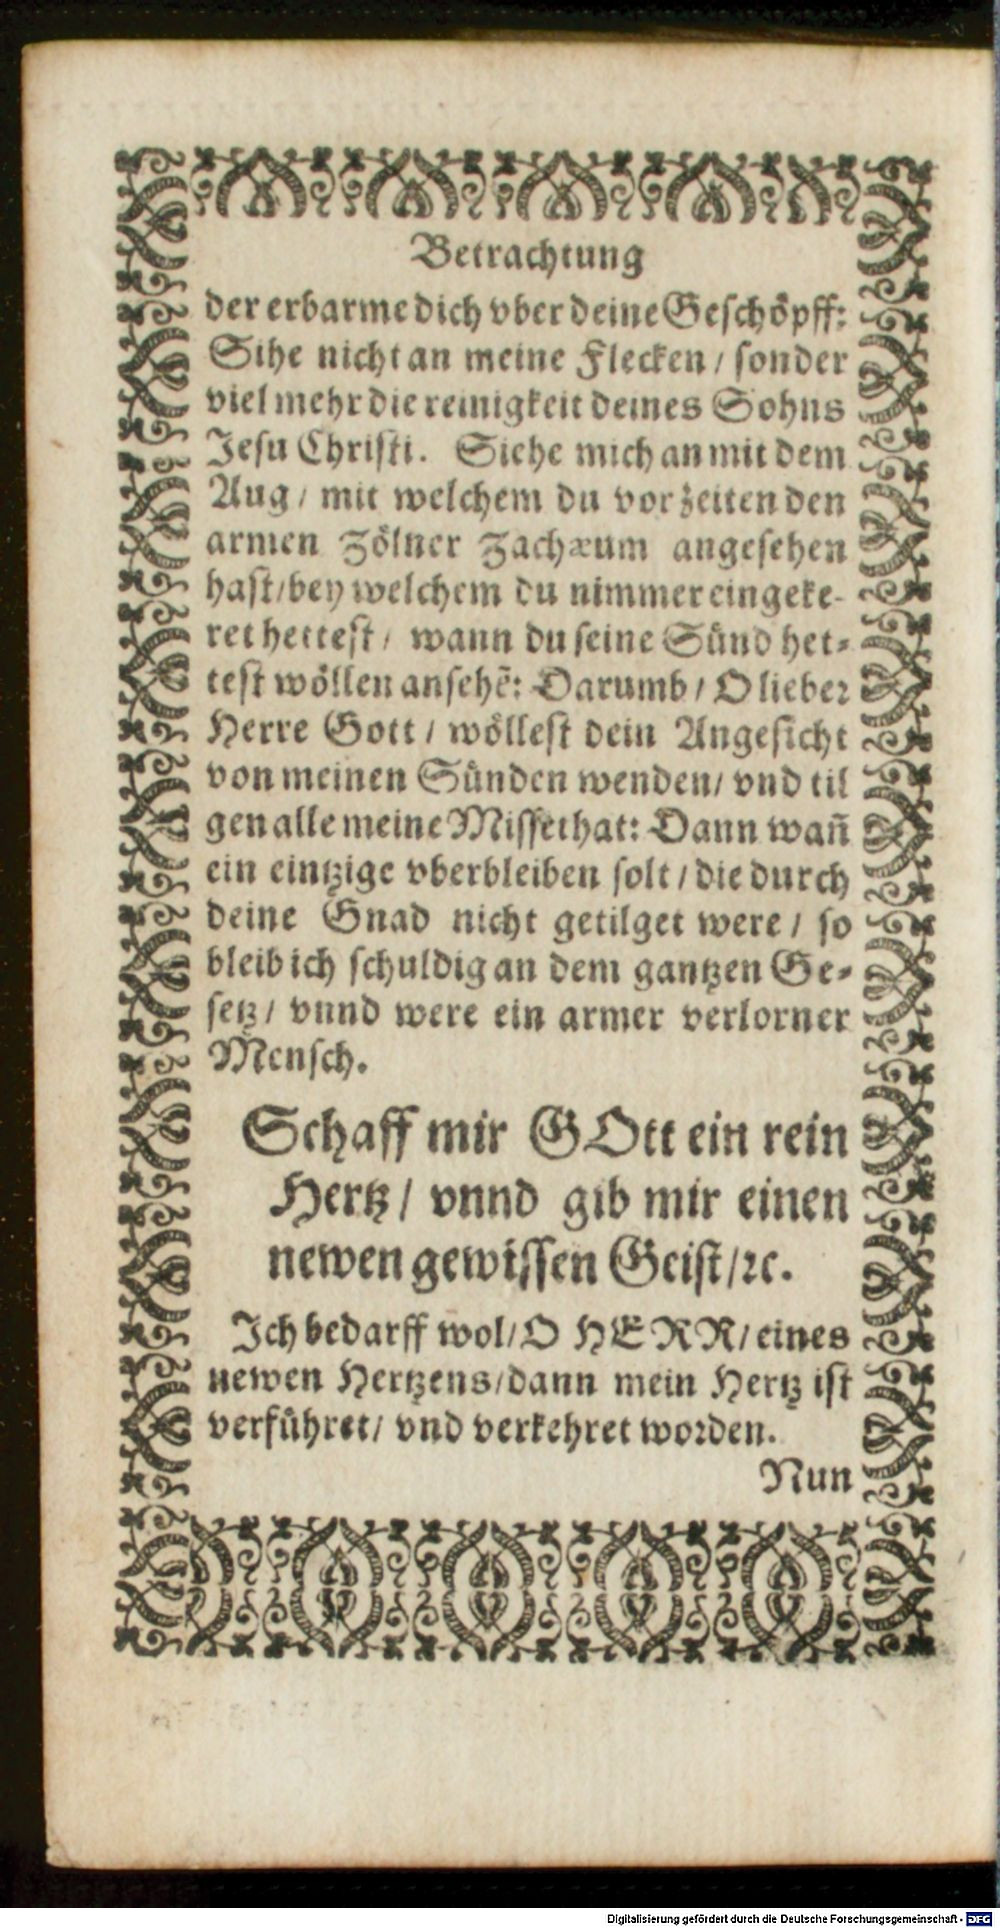 Betrachtung
der erbarme dich vber deine Geschöpff:
Sihe nicht an meine Flecken / sonder
viel mehr die reinigkeit deines Sohns
Jesu Christi. Siehe mich an mit dem
Aug / mit welchem du vor zeiten den
armen Zölner Zachæum angesehen
hast / bey welchem du nimmer eingeke-
ret hettest / wann du seine Sünd het-
test wöllen ansehẽ: Darumb / O lieber
Herre Gott / wöllest dein Angesicht
von meinen Sünden wenden / vnd til
gen alle meine Missethat: Dann wañ
ein eintzige vberbleiben solt / die durch
deine Gnad nicht getilget were / so
bleib ich schuldig an dem gantzen Ge-
setz / vnnd were ein armer verlorner
Mensch.
Schaff mir GOtt ein rein
Hertz / vnnd gib mir einen
newen gewissen Geist / ꝛc.
Ich bedarff wol / O HERR / eines
newen Hertzens / dann mein Hertz ist
verführet / vnd verkehret worden.
Nun
Digitalisierung gefördert durch die Deutsche Forschungsgemeinschaft - DFG